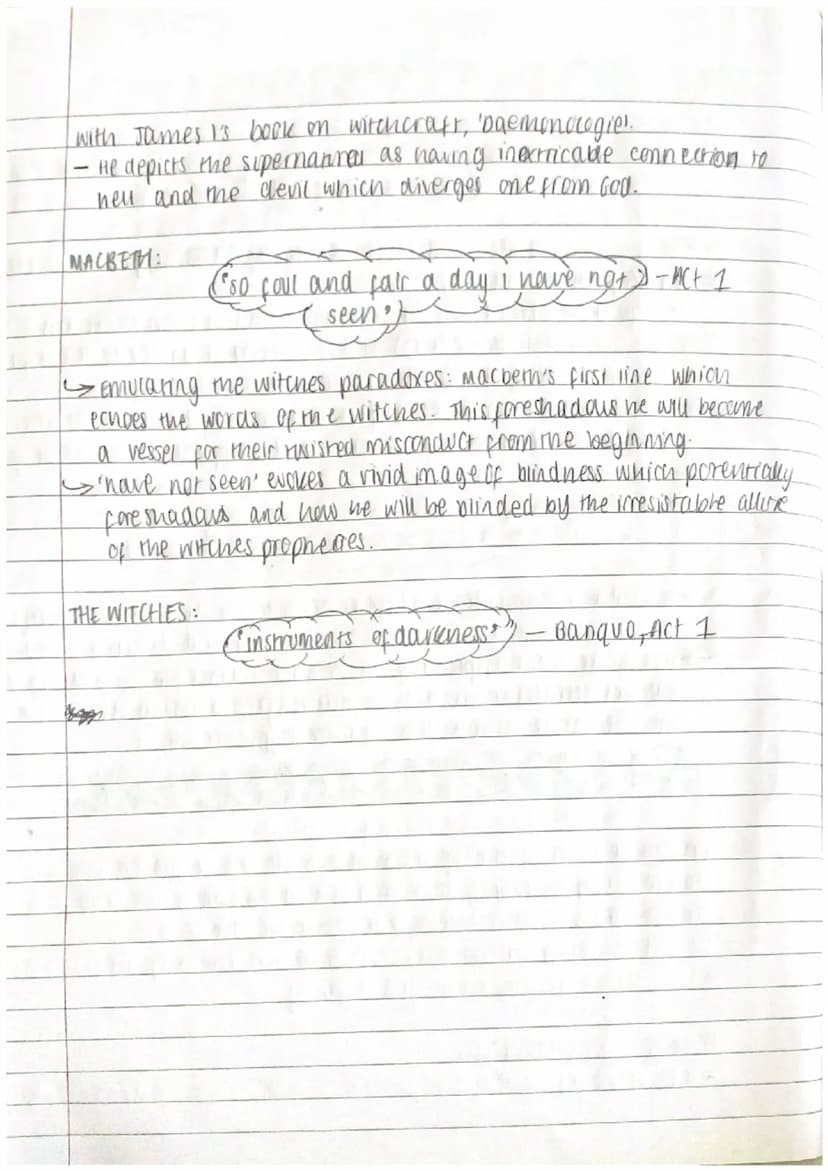 with James I's book on witchcraft, 'Daemonologie'.
- He depicts the supernatural as having inextricable connection to
hell and the devil which diverges one from God.
MACBETH:
"so foul and fair a day i have not - Act 1
seen"
↳ Emulating the witches paradoxes: Macbeth's first line which
echoes the words of the witches. This foreshadows he will become
a vessel for their twisted misconduct from the beginning.
↳ 'have not seen' evokes a vivid image of blindness which potentially
foreshadows and how he will be blinded by the irresistable allure
of the witches prophecies.
THE WITCHES:
"instruments of darkness" - Banquo, Act 1